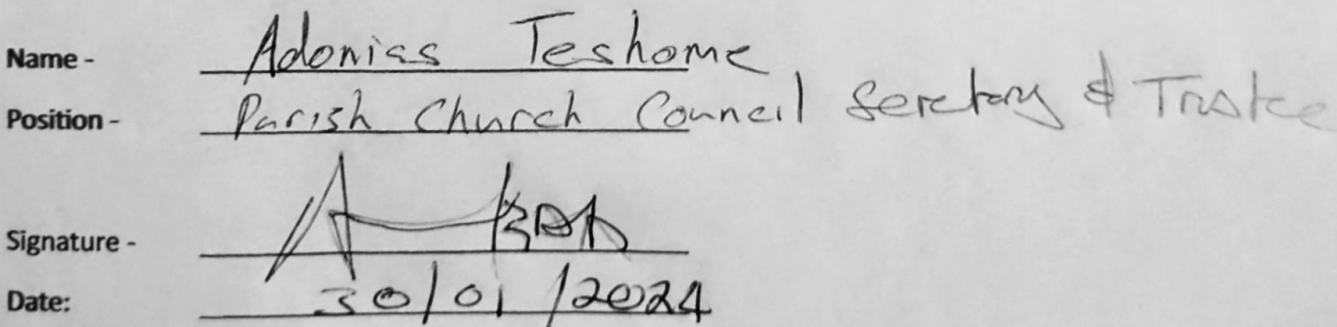 Name - Adoniss Teshome
Position - Parish Church Council Seretary & Trustee
Signature -
Date: 30/01/2024